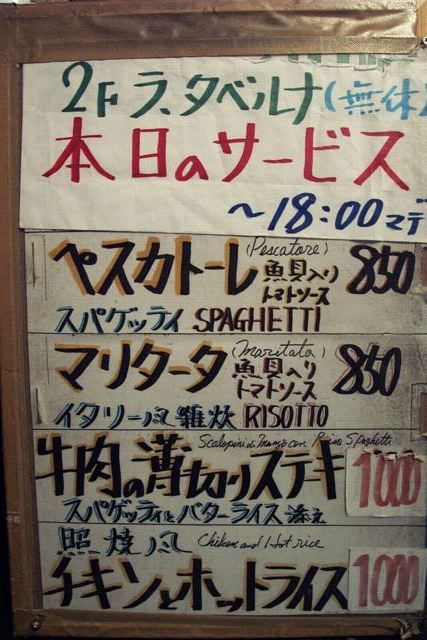 2F ラ、タベルナ(無休)
本日のサービス
～18:00マデ
ペスカトーレ (Pescatore) 魚貝入り トマトソース 850
スパゲッティ SPAGHETTI
マリタータ (Maritata) 魚貝入り トマトソース 850
イタリー風雑炊 RISOTTO
Scalopini di Manzo con Spaghetti
牛肉の薄切りステーキ 1000
スパゲッティとバターライス添え
照焼風 Chiken and Hot rice
チキンとホットライス 1000